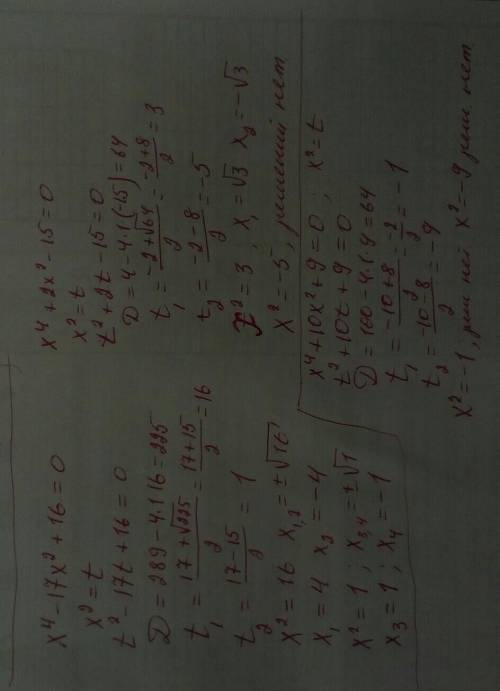 x⁴ - 17x² + 16 = 0
x² = t
t² - 17t + 16 = 0
D = 289 - 4·1·16 = 225
t₁ = (17 + √225)/2 = (17 + 15)/2 = 16
t₂ = (17 - 15)/2 = 1
x² = 16 x₁,₂ = ±√16
x₁ = 4 x₂ = -4
x² = 1; x₃,₄ = ±√1
x₃ = 1; x₄ = -1
x⁴ + 2x² - 15 = 0
x² = t
t² + 2t - 15 = 0
D = 4 - 4·1(-15) = 64
t₁ = (-2 + √64)/2 = (-2 + 8)/2 = 3
t₂ = (-2 - 8)/2 = -5
x² = 3 x₁ = √3 x₂ = -√3
x² = -5, решений нет
x⁴ + 10x² + 9 = 0; x² = t
t² + 10t + 9 = 0
D = 100 - 4·1·9 = 64
t₁ = (-10 + 8)/2 = -2/2 = -1
t₂ = (-10 - 8)/2 = -9
x² = -1, реш нет x² = -9 реш. нет